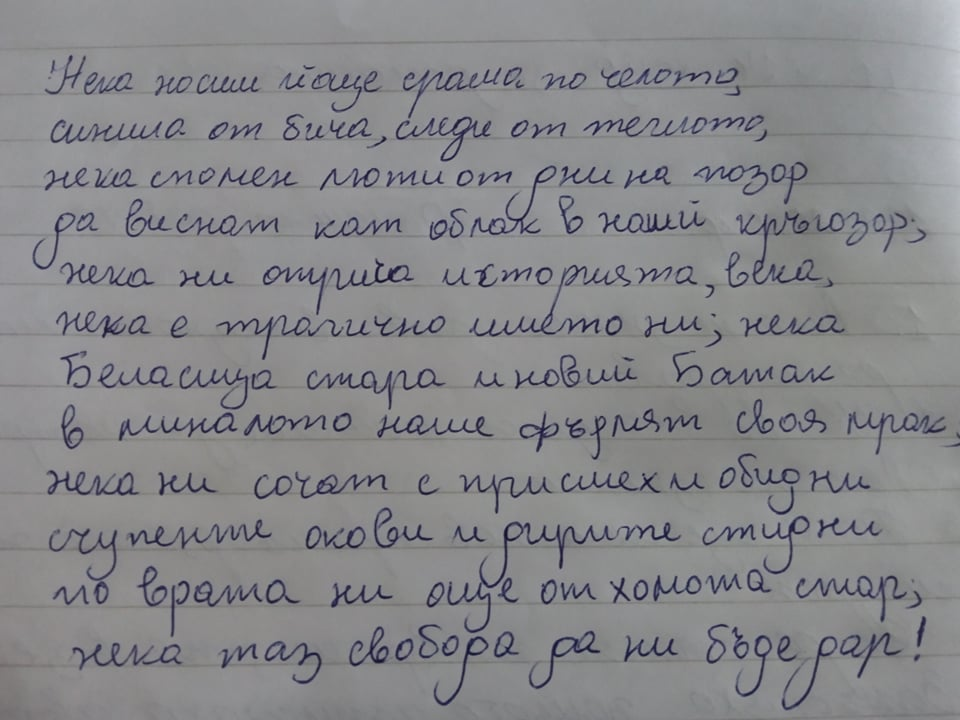 Нека носим йоще срама по челото,
синила от бича, следи от теглото,
нека спомен люти от дни на позор
да виснат кат облак в наший кръгозор;
нека ни отрича историята, века,
нека е трагично името ни; нека
Беласица стара и новий Батак
в миналото наше фърлят своя мрак,
нека ни сочат с присмех и обидни
счупенте окови и дирите стидни
по врата ни още от хомота стар;
нека таз свобода да ни бъде дар!